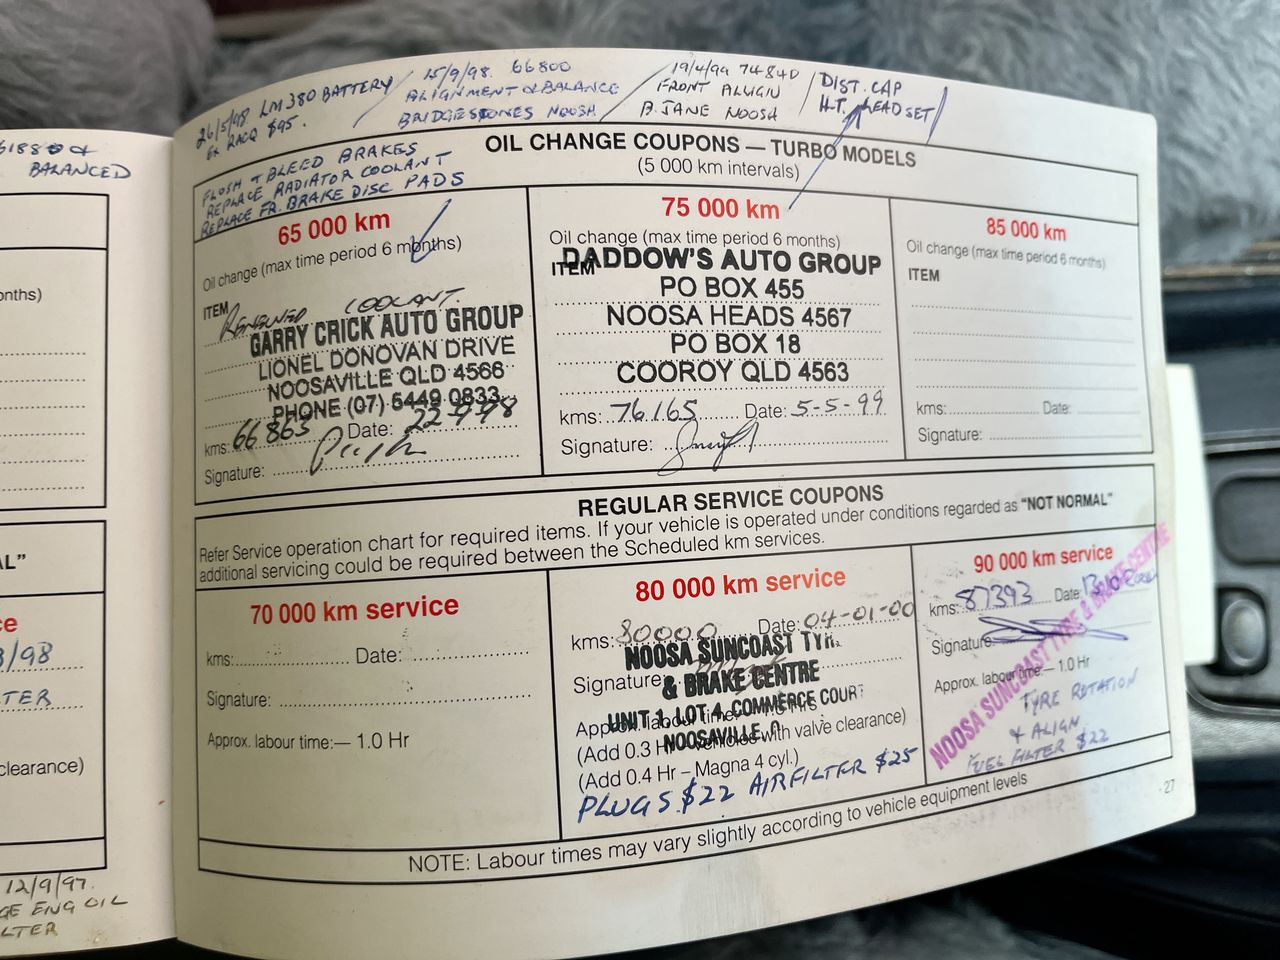 26/5/98 LM380 BATTERY
EX RACQ $95.
15/9/98. 66800
ALIGNMENT & BALANCE
BRIDGESTONES NOOSH
19/4/99 74840
FRONT ALIGN
B. JANE NOOSH
DIST. CAP
H.T. LEAD SET
BALANCED
FLUSH & BLEED BRAKES
REPLACE RADIATOR COOLANT
REPLACE FR. BRAKE DISC PADS
OIL CHANGE COUPONS — TURBO MODELS
(5 000 km intervals)
65 000 km
Oil change (max time period 6 months)
ITEM
RENEWED COOLANT.
GARRY CRICK AUTO GROUP
LIONEL DONOVAN DRIVE
NOOSAVILLE QLD 4566
PHONE (07) 5449 0833
kms: 66863 Date: 22-9-98
Signature:
75 000 km
Oil change (max time period 6 months)
ITEM
DADDOW'S AUTO GROUP
PO BOX 455
NOOSA HEADS 4567
PO BOX 18
COOROY QLD 4563
kms: 76165 Date: 5-5-99
Signature:
85 000 km
Oil change (max time period 6 months)
ITEM
kms: Date:
Signature:
REGULAR SERVICE COUPONS
Refer Service operation chart for required items. If your vehicle is operated under conditions regarded as "NOT NORMAL"
additional servicing could be required between the Scheduled km services.
70 000 km service
kms: Date:
Signature:
Approx. labour time:— 1.0 Hr
80 000 km service
kms: 80000 Date: 04-01-00
NOOSA SUNCOAST TYRE
Signature:
& BRAKE CENTRE
UNIT 1, LOT 4, COMMERCE COURT
Approx. labour time:
NOOSAVILLE
(Add 0.3 Hr – vehicles with valve clearance)
(Add 0.4 Hr – Magna 4 cyl.)
PLUGS $22 AIRFILTER $25
90 000 km service
kms: 87393 Date:
Signature:
Approx. labour time:— 1.0 Hr
NOOSA SUNCOAST TYRE & BRAKE CENTRE
TYRE ROTATION
& ALIGN
FUEL FILTER $22
NOTE: Labour times may vary slightly according to vehicle equipment levels
27
onths)
/98
TER
clearance)
12/9/97.
GE ENG OIL
LTER